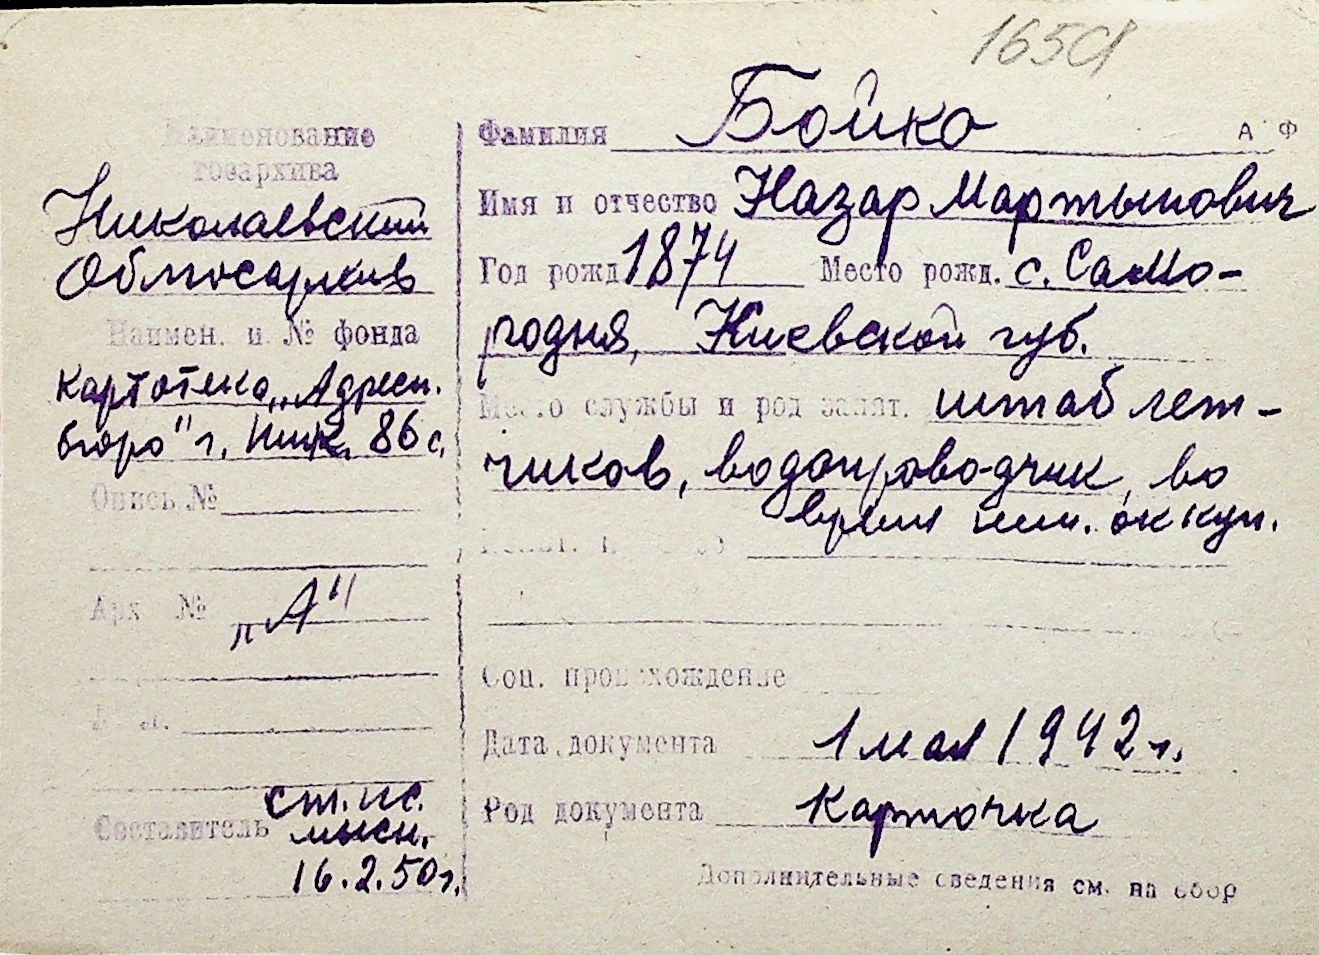 165
Наименование
госархива
Николаевский
Облгосархив
Наимен. и № фонда
картотека „Адресн.
бюро" г. Ник. 86 с.
Опись №
Арх №
„А"
Составитель
ст. ис.
мысн.
16.2.50г.
Фамилия Бойко А Ф
Имя и отчество Назар Мартынович
Год рожд 1874 Место рожд. с. Само-
родня, Киевской губ.
Место службы и род занят. штаб лет-
чиков, водопроводчик, во
время нем. оккуп.
Соц. происхождение
Дата документа 1 мая 1942 г.
Род документа Карточка
Дополнительные сведения см. на обор